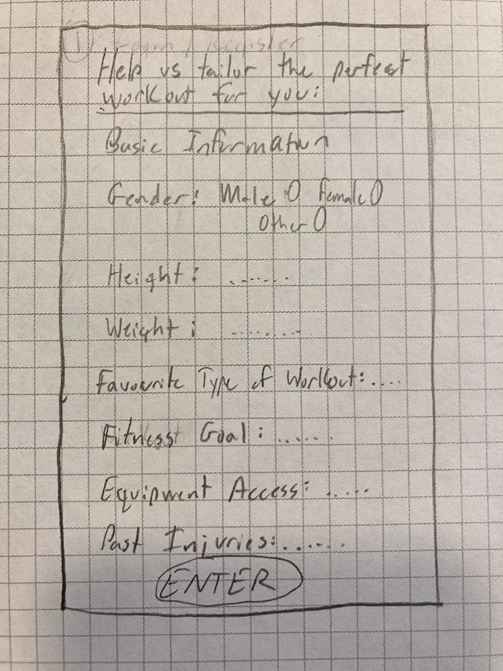 ①
Help us tailor the perfect
workout for you:
Basic Information
Gender: Male O Female O
Other O
Height: .......
Weight: ........
Favourite Type of Workout: ....
Fitnesst Goal: ......
Equipment Access: .....
Past Injuries: .......
ENTER